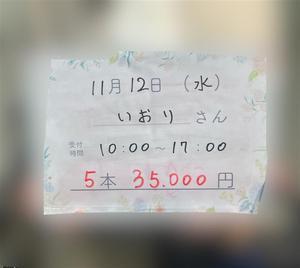 11月12日（水）
いおりさん
受付時間 10:00～17:00
5本 35.000円